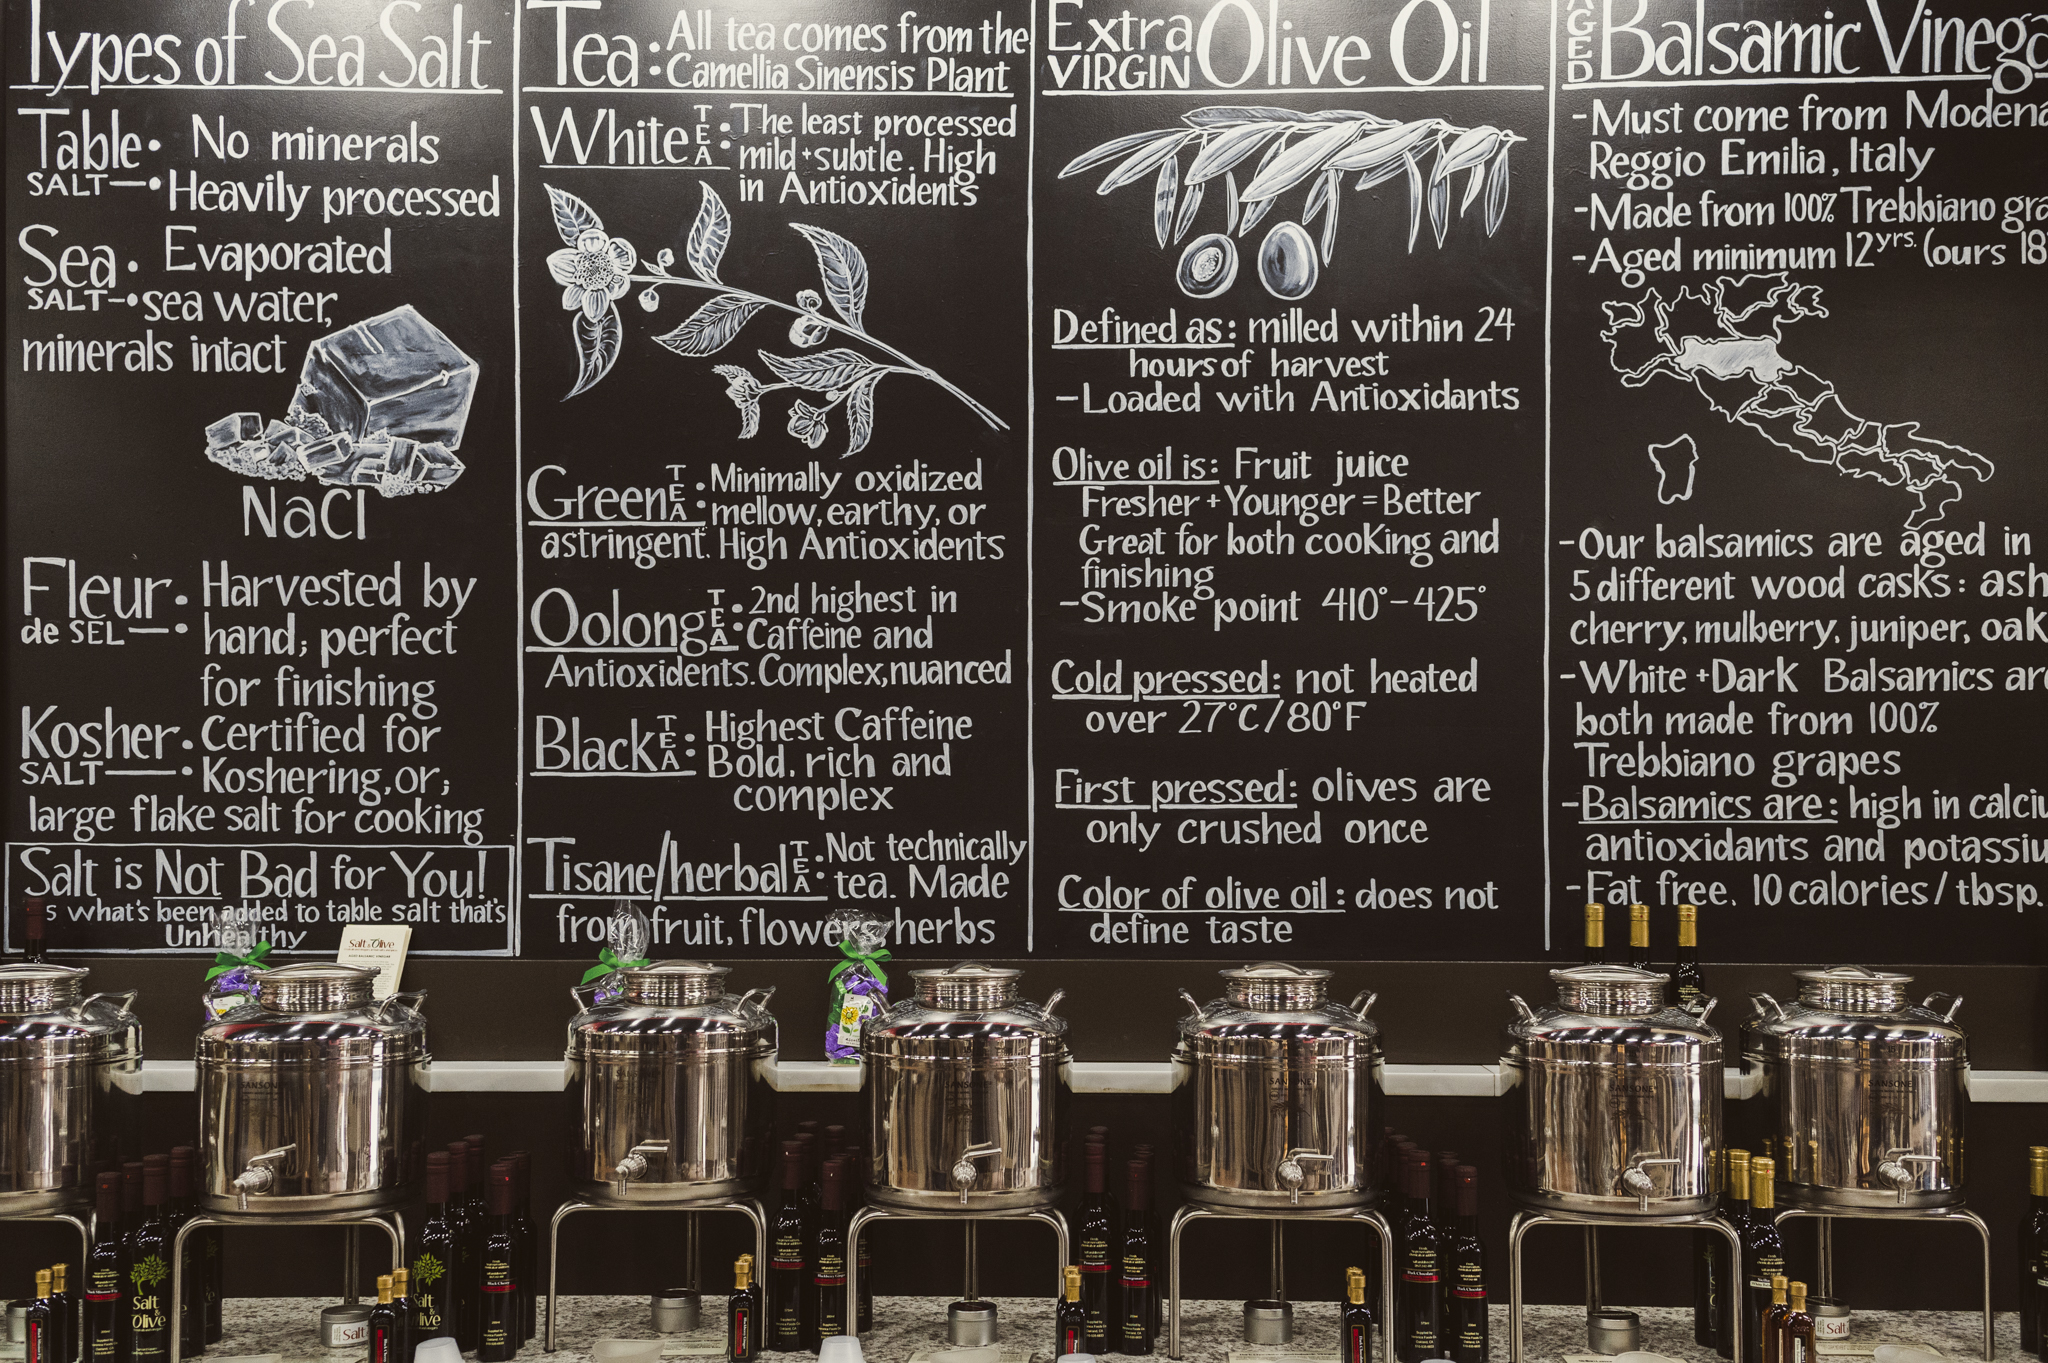 Types of Sea Salt
Table SALT • No minerals
• Heavily processed
Sea SALT • Evaporated
• sea water,
minerals intact
NaCl
Fleur de SEL • Harvested by
• hand; perfect
for finishing
Kosher SALT • Certified for
• Koshering, or;
large flake salt for cooking
Salt is Not Bad for You!
s what's been added to table salt that's
Unhealthy
Tea: All tea comes from the
Camellia Sinensis Plant
White TEA: The least processed
mild + subtle. High
in Antioxidents
Green TEA: Minimally oxidized
mellow, earthy, or
astringent. High Antioxidents
Oolong TEA: 2nd highest in
Caffeine and
Antioxidents. Complex, nuanced
Black TEA: Highest Caffeine
Bold, rich and
complex
Tisane/herbal TEA: Not technically
tea. Made
from fruit, flowers herbs
Extra VIRGIN Olive Oil
Defined as: milled within 24
hours of harvest
-Loaded with Antioxidants
Olive oil is: Fruit juice
Fresher + Younger = Better
Great for both cooking and
finishing
-Smoke point 410°-425°
Cold pressed: not heated
over 27°C/80°F
First pressed: olives are
only crushed once
Color of olive oil: does not
define taste
AGED Balsamic Vinega
-Must come from Modena
Reggio Emilia, Italy
-Made from 100% Trebbiano gra
-Aged minimum 12 yrs. (ours 18
-Our balsamics are aged in
5 different wood casks: ash
cherry, mulberry, juniper, oak
-White + Dark Balsamics are
both made from 100%
Trebbiano grapes
-Balsamics are: high in calciu
antioxidants and potassiu
-Fat free. 10 calories/tbsp.
Salt & Olive
SANSONE
SANSONE
SANSONE
SANSONE
SANSONE
Salt
&
Olive
Salt
&
Olive
Salt
Salt